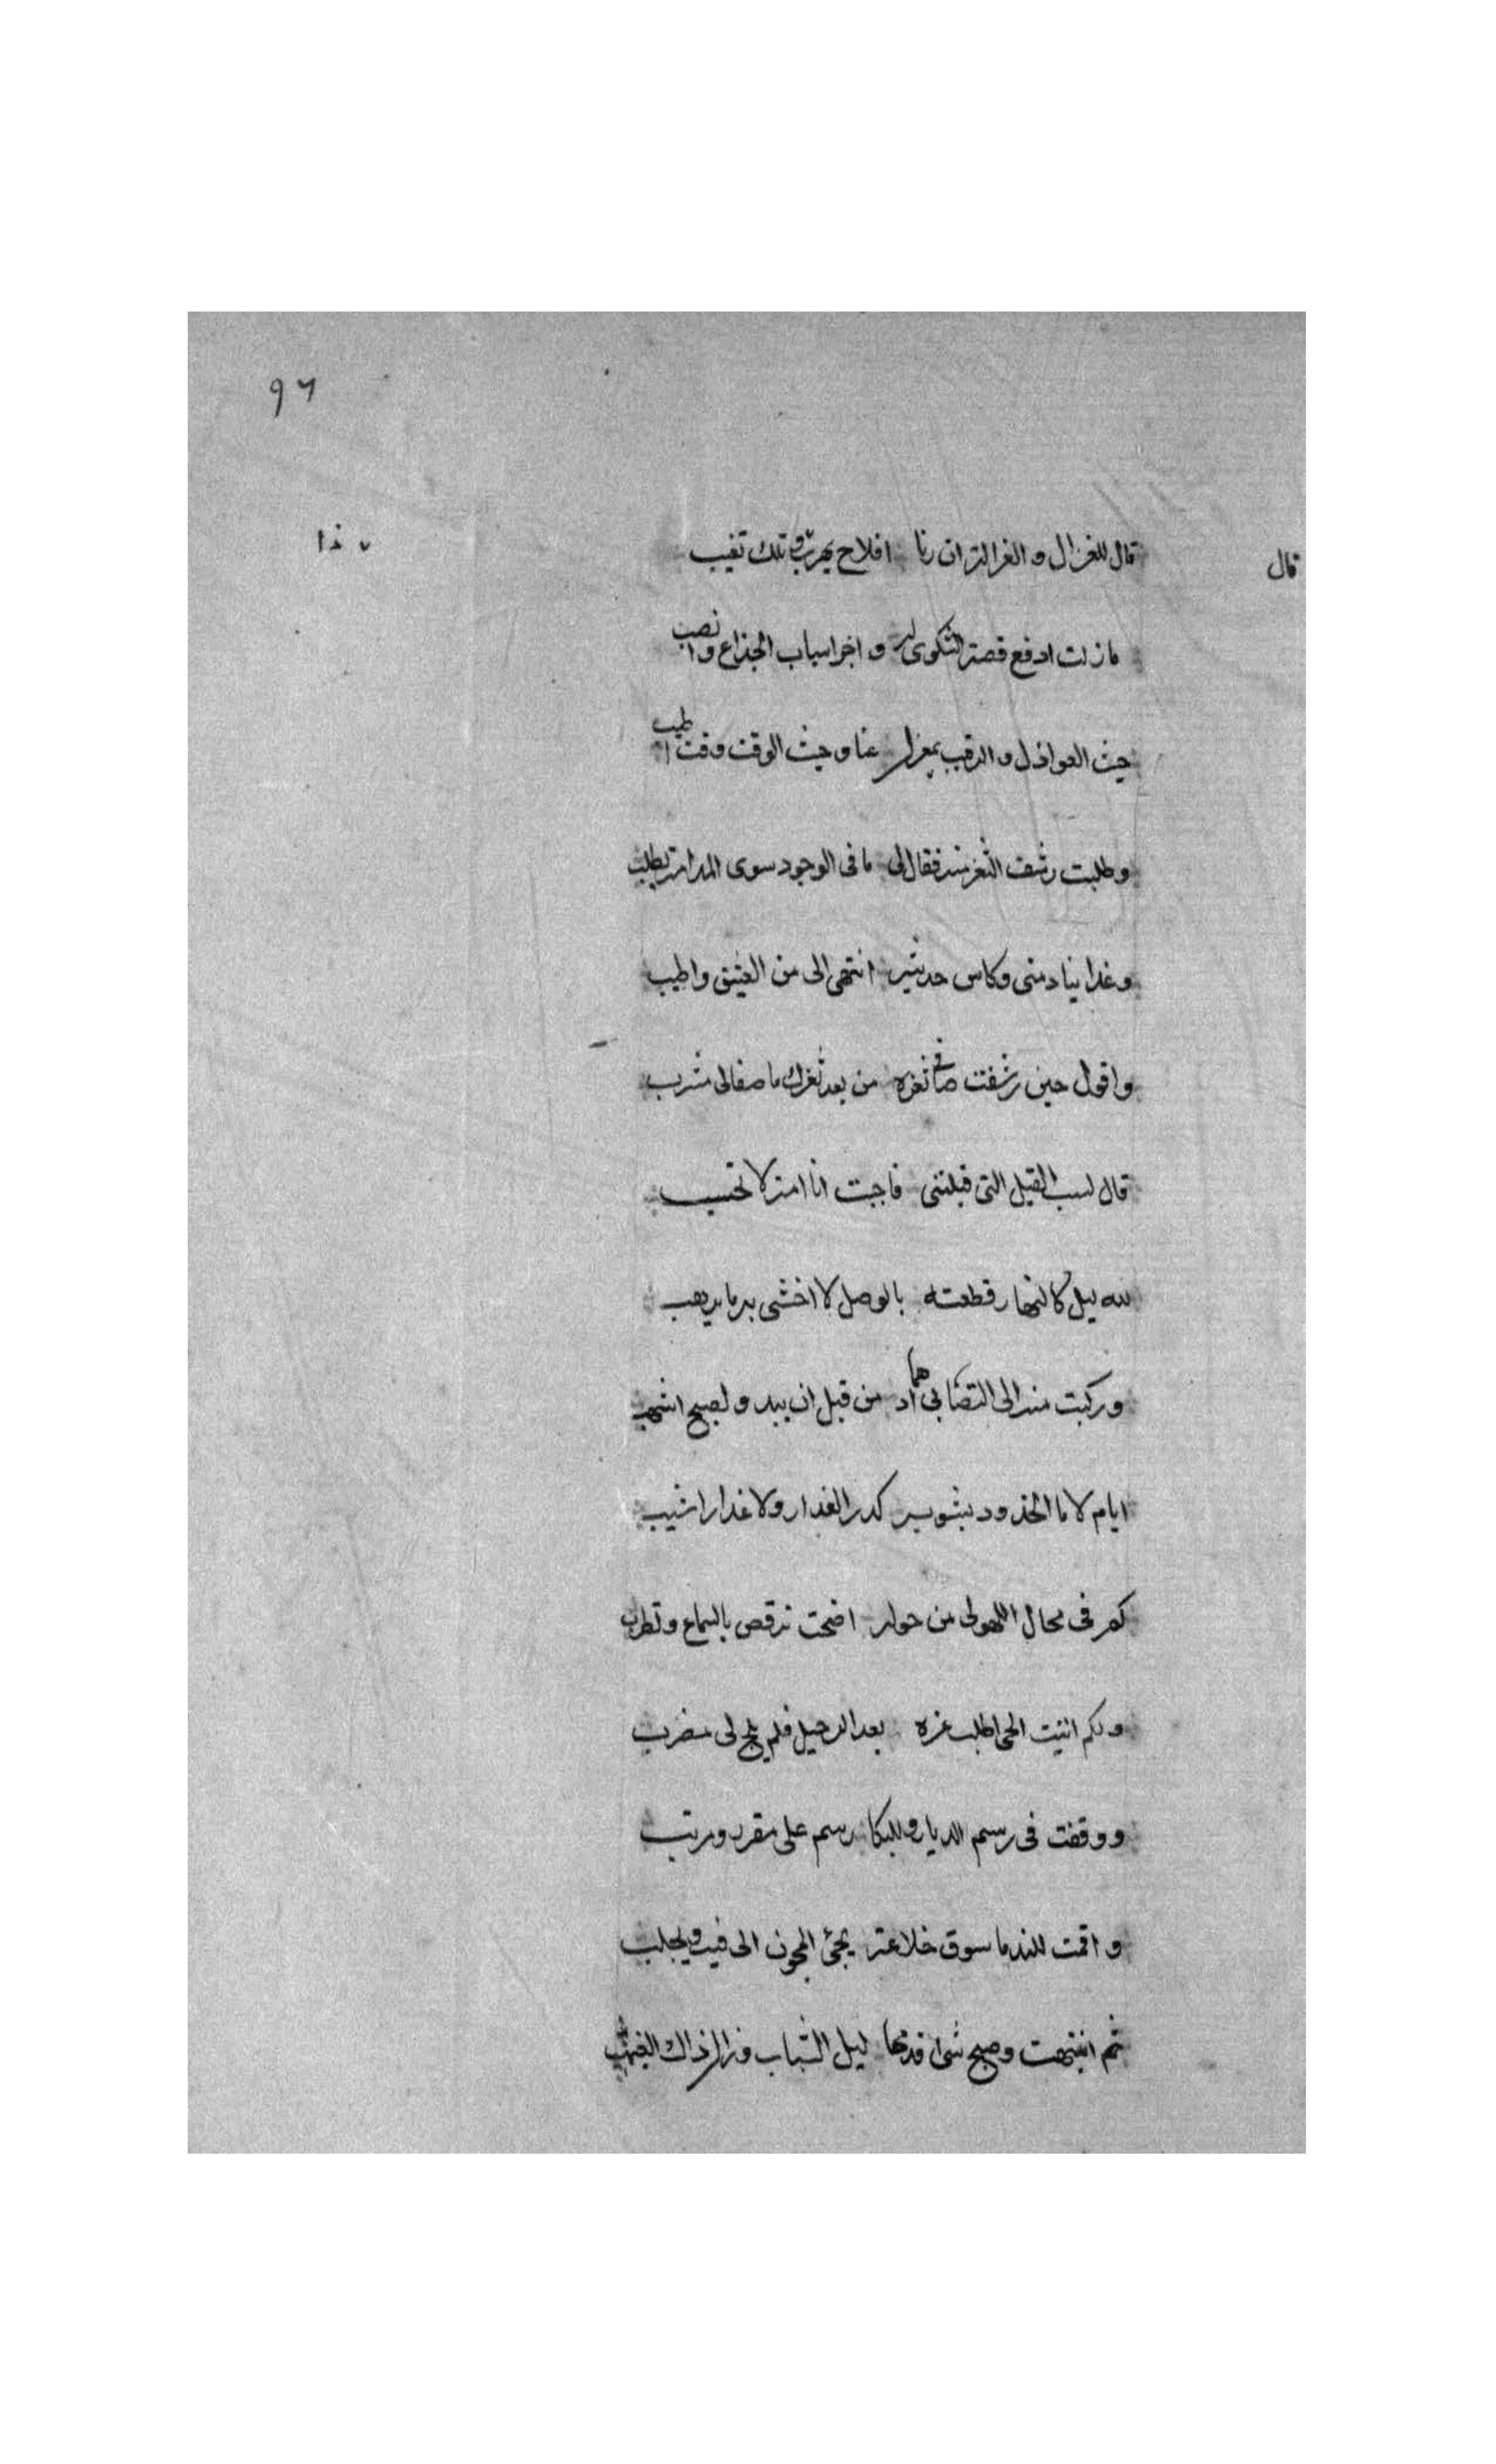 ٩٦
قال للغزال و الغزالة ان رنا افلاح يهرب و تلك تغيب
قال
ذا
مازلت ادفع قصة الشكوى له و اجر اسباب الخداع وانصب
حيث العواذل و الرقيب بمعزل عنا وحيث الوقت وقت اطيب
وطلبت رشف الثغر منه فقال لى ما فى الوجود سوى المدامة يطلب
وغدا ينادمنى وكاس حديثه اشهى الى من العتيق واطيب
واقول حين رشفت صافى ثغره من بعد ثغرك ما صفالى مشرب
قال احسب القبل التى قبلتنى فاجبت انا امة لا تحسب
لله ليل كالنهار قطعته بالوصل لا اخشى به ما يرهب
وركبت منه الى التصابى ادهما من قبل ان يبدو لصبح اشهب
ايام لا ماالخدود يشوبه كدر العذار ولا عذارا شيب
كم فى مجال اللهولى من جولة اضحت ترقص بالسماع وتطرب
ولكم اتيت الحى اطلب غره بعد الرحيل فلم يلح لى مضرب
ووقفت فى رسم الديار وللبكا رسم على مقرر ومرتب
و اقمت للندما سوق خلاعة يجئ المجون الى فيه ويجلب
ثم انتبهت وصبح شيبى قدمحا ليل الشباب وزال ذاك الغيهب